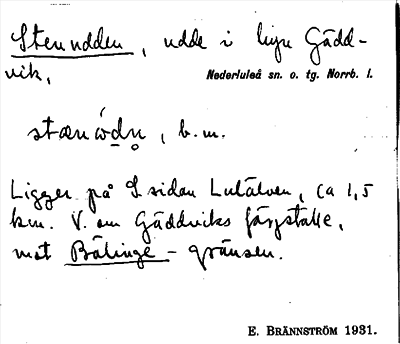 Stenudden, udde i byn Gädd-
vik,
Nederluleå sn. o. tg. Norrb. l.
, b.m.
Ligger på S sidan Luleälven, ca 1,5
km. V. om Gäddviks färjställe,
mot Bälinge-gränsen.
E. BRÄNNSTRÖM 1931.